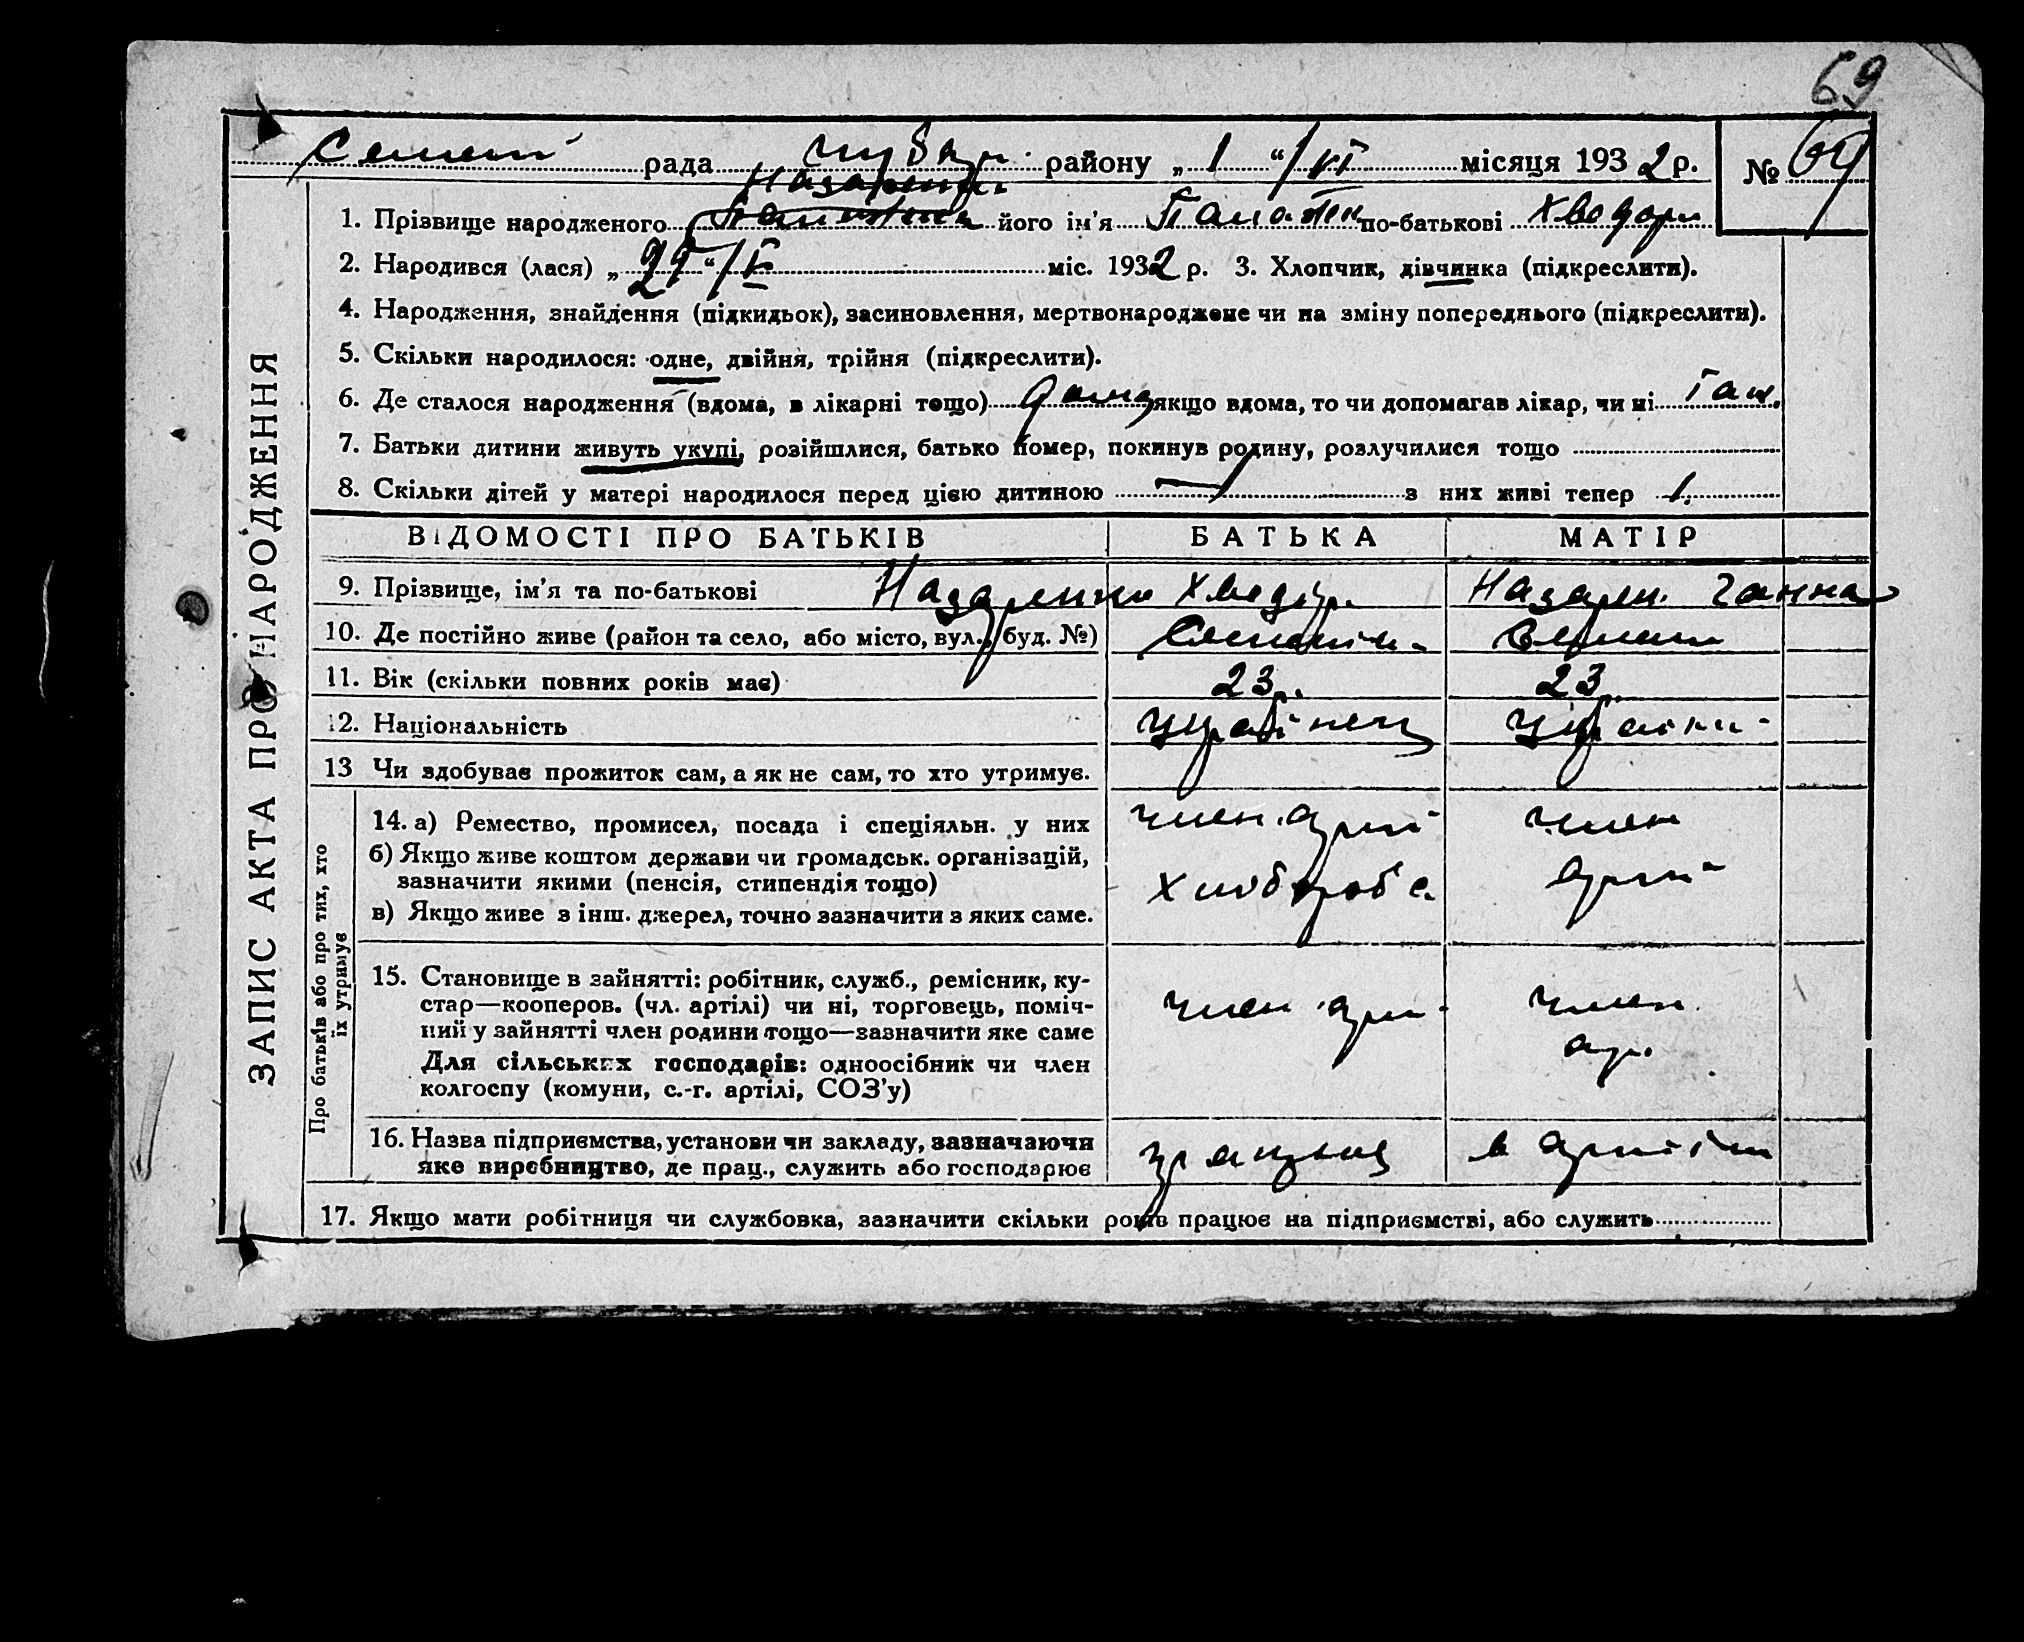 69
рада району „ 1 “ / VI місяця 1932 р. № 69
Назаренко
1. Прізвище народженого його ім’я по-батькові Хведорі
2. Народився (лася) „ 29 “ / V міс. 1932 р. 3. Хлопчик, дівчинка (підкреслити).
4. Народження, знайдення (підкидьок), засиновлення, мертвонароджене чи на зміну попереднього (підкреслити).
5. Скільки народилося: одне, двійня, трійня (підкреслити).
6. Де сталося народження (вдома, в лікарні тощо) дома якщо вдома, то чи допомагав лікар, чи ні
7. Батьки дитини живуть укупі, розійшлися, батько помер, покинув родину, розлучилися тощо
8. Скільки дітей у матері народилося перед цією дитиною 1 з них живі тепер 1.
ВІДОМОСТІ ПРО БАТЬКІВ БАТЬКА МАТІР
9. Прізвище, ім’я та по-батькові Назаренко Хведір. Назарен. Ганна
10. Де постійно живе (район та село, або місто, вул., буд. №)
11. Вік (скільки повних років має) 23 р. 23 р.
12. Національність українец украін
13 Чи здобуває прожиток сам, а як не сам, то хто утримує.
14. а) Ремество, промисел, посада і спеціяльн. у них член. арт член
б) Якщо живе коштом держави чи громадськ. організацій,
зазначити якими (пенсія, стипендія тощо) хлібороб арт
в) Якщо живе з інш. джерел, точно зазначити з яких саме.
15. Становище в зайнятті: робітник, служб., ремісник, ку-
стар—кооперов. (чл. артілі) чи ні, торговець, поміч- член ар член
ний у зайнятті член родини тощо—зазначити яке саме
Для сільських господарів: одноосібник чи член ар.
колгоспу (комуни, с.-г. артілі, СОЗ’у)
16. Назва підприємства, установи чи закладу, зазначаючи
яке виробництво, де прац., служить або господарює в артілі
17. Якщо мати робітниця чи службовка, зазначити скільки років працює на підприємстві, або служить
ЗАПИС АКТА ПРО НАРОДЖЕННЯ
Про батьків або про тих, хто
їх утримує